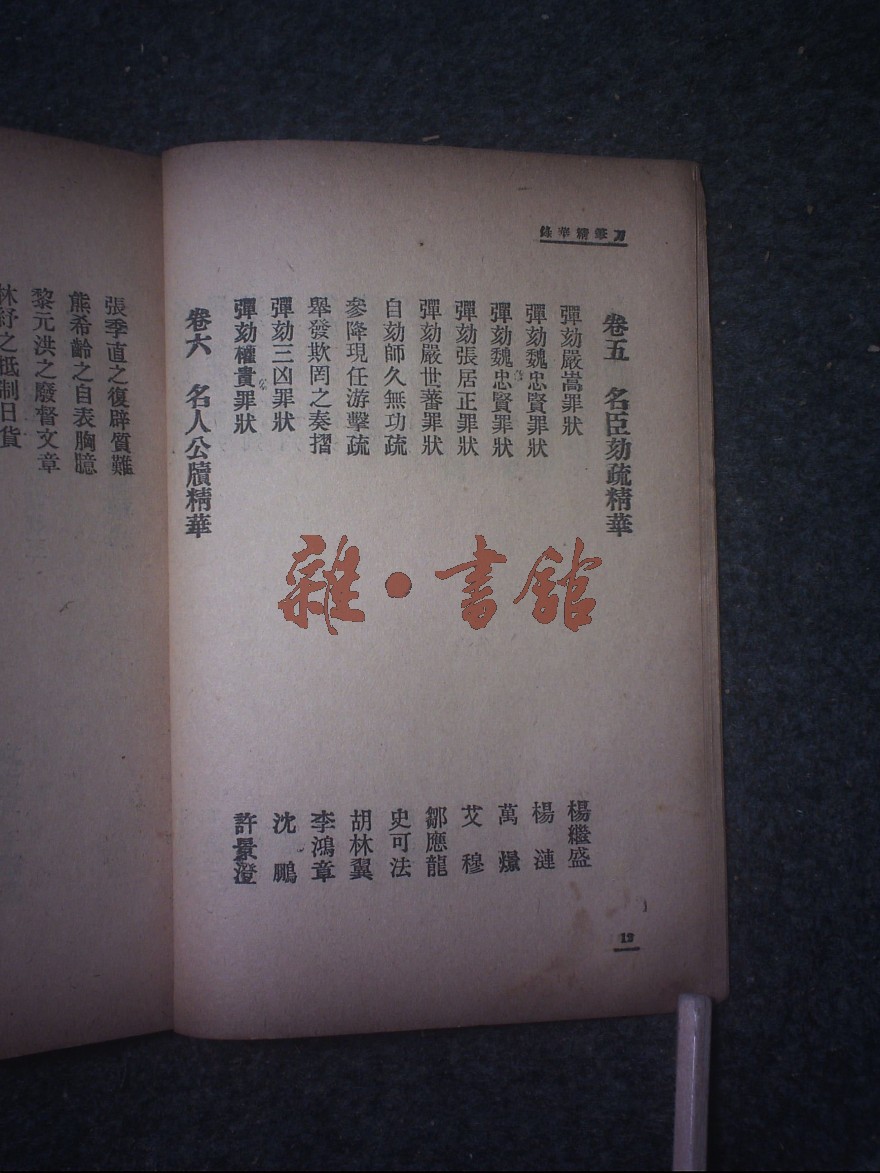 刀筆精華錄
卷五 名臣劾疏精華
彈劾嚴嵩罪狀 楊繼盛
彈劾魏忠賢罪狀 楊漣
彈劾魏忠賢罪狀 萬燝
彈劾張居正罪狀 艾穆
彈劾嚴世蕃罪狀 鄒應龍
自劾師久無功疏 史可法
參降現任游擊疏 胡林翼
舉發欺罔之奏摺 李鴻章
彈劾三凶罪狀 沈鵬
彈劾權貴罪狀 許景澄
卷六 名人公牘精華
張季直之復辟質難
熊希齡之自表胸臆
黎元洪之廢督文章
林紓之抵制日貨
雜·書館